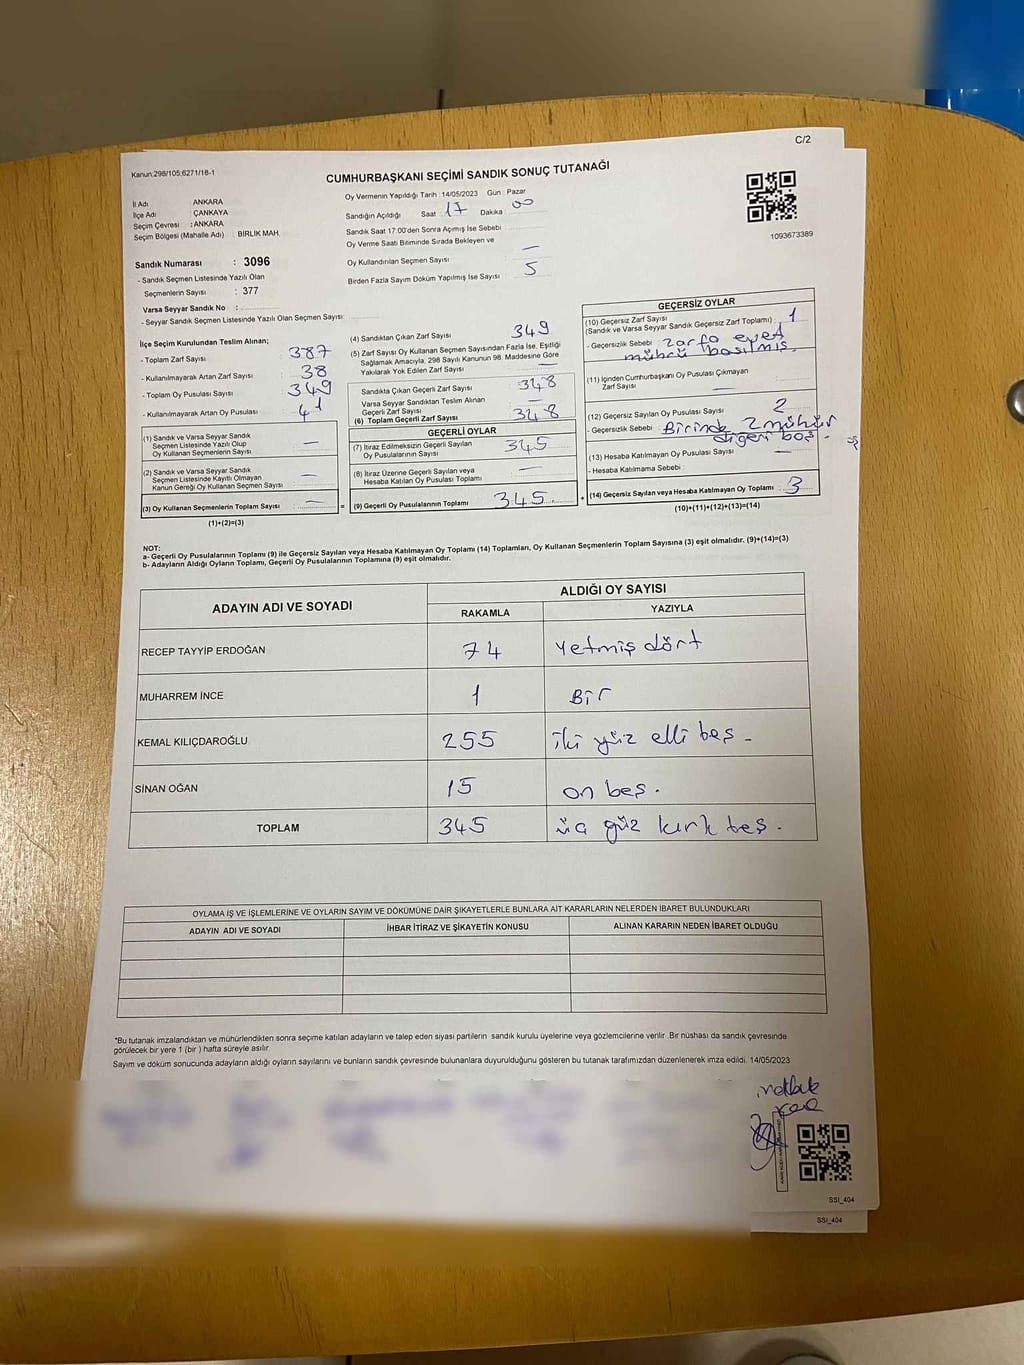 C/2
Kanun:298/105;6271/18-1
CUMHURBAŞKANI SEÇİMİ SANDIK SONUÇ TUTANAĞI
İl Adı : ANKARA
İlçe Adı : ÇANKAYA
Seçim Çevresi : ANKARA
Seçim Bölgesi (Mahalle Adı) : BİRLİK MAH.
Oy Vermenin Yapıldığı Tarih : 14/05/2023 Gün : Pazar
Sandığın Açıldığı Saat : 17 Dakika : 00
Sandık Saat 17:00'den Sonra Açımış İse Sebebi :
Oy Verme Saati Bitiminde Sırada Bekleyen ve
Oy Kullandırılan Seçmen Sayısı : —
Birden Fazla Sayım Döküm Yapılmış İse Sayısı : 5
1093673389
Sandık Numarası : 3096
- Sandık Seçmen Listesinde Yazılı Olan
Seçmenlerin Sayısı : 377
Varsa Seyyar Sandık No :
- Seyyar Sandık Seçmen Listesinde Yazılı Olan Seçmen Sayısı:
İlçe Seçim Kurulundan Teslim Alınan;
- Toplam Zarf Sayısı : 387
- Kullanılmayarak Artan Zarf Sayısı : 38
- Toplam Oy Pusulası Sayısı : 349
- Kullanılmayarak Artan Oy Pusulası : 41
(1) Sandık ve Varsa Seyyar Sandık
Seçmen Listesinde Yazılı Olup
Oy Kullanan Seçmenlerin Sayısı : —
(2) Sandık ve Varsa Seyyar Sandık
Seçmen Listesinde Kayıtlı Olmayan
Kanun Gereği Oy Kullanan Seçmen Sayısı : —
(3) Oy Kullanan Seçmenlerin Toplam Sayısı : —
(1)+(2)=(3)
(4) Sandıktan Çıkan Zarf Sayısı : 349
(5) Zarf Sayısı Oy Kullanan Seçmen Sayısından Fazla İse, Eşitliği
Sağlamak Amacıyla, 298 Sayılı Kanunun 98. Maddesine Göre
Yakılarak Yok Edilen Zarf Sayısı : —
Sandıkta Çıkan Geçerli Zarf Sayısı : 348
Varsa Seyyar Sandıktan Teslim Alınan
Geçerli Zarf Sayısı : —
(6) Toplam Geçerli Zarf Sayısı : 348
GEÇERLİ OYLAR
(7) İtiraz Edilmeksizin Geçerli Sayılan
Oy Pusulalarının Sayısı : 345
(8) İtiraz Üzerine Geçerli Sayılan veya
Hesaba Katılan Oy Pusulası Toplamı : —
= (9) Geçerli Oy Pusulalarının Toplamı : 345.
GEÇERSİZ OYLAR
(10) Geçersiz Zarf Sayısı
(Sandık ve Varsa Seyyar Sandık Geçersiz Zarf Toplamı) : 1
- Geçersizlik Sebebi : Zarfa evet
mührü basılmış.
(11) İçinden Cumhurbaşkanı Oy Pusulası Çıkmayan
Zarf Sayısı : —
(12) Geçersiz Sayılan Oy Pusulası Sayısı : 2
- Geçersizlik Sebebi : Birinde 2 mühür
diğeri boş.
(13) Hesaba Katılmayan Oy Pusulası Sayısı : —
- Hesaba Katılmama Sebebi :
+ (14) Geçersiz Sayılan veya Hesaba Katılmayan Oy Toplamı : 3
(10)+(11)+(12)+(13)=(14)
NOT:
a- Geçerli Oy Pusulalarının Toplamı (9) ile Geçersiz Sayılan veya Hesaba Katılmayan Oy Toplamı (14) Toplamları, Oy Kullanan Seçmenlerin Toplam Sayısına (3) eşit olmalıdır. (9)+(14)=(3)
b- Adayların Aldığı Oyların Toplamı, Geçerli Oy Pusulalarının Toplamına (9) eşit olmalıdır.
ADAYIN ADI VE SOYADI
ALDIĞI OY SAYISI
RAKAMLA YAZIYLA
RECEP TAYYİP ERDOĞAN 74 Yetmiş dört
MUHARREM İNCE 1 Bir
KEMAL KILIÇDAROĞLU 255 iki yüz elli beş -
SİNAN OĞAN 15 on beş.
TOPLAM 345 üç yüz kırk beş.
OYLAMA İŞ VE İŞLEMLERİNE VE OYLARIN SAYIM VE DÖKÜMÜNE DAİR ŞİKAYETLERLE BUNLARA AİT KARARLARIN NELERDEN İBARET BULUNDUKLARI
ADAYIN ADI VE SOYADI İHBAR İTİRAZ VE ŞİKAYETİN KONUSU ALINAN KARARIN NEDEN İBARET OLDUĞU
*Bu tutanak imzalandıktan ve mühürlendikten sonra seçime katılan adayların ve talep eden siyasi partilerin sandık kurulu üyelerine veya gözlemcilerine verilir. Bir nüshası da sandık çevresinde
görülecek bir yere 1 (bir ) hafta süreyle asılır.
Sayım ve döküm sonucunda adayların aldığı oyların sayılarını ve bunların sandık çevresinde bulunanlara duyurulduğunu gösteren bu tutanak tarafımızdan düzenlenerek imza edildi. 14/05/2023
SSI_404
SSI_404